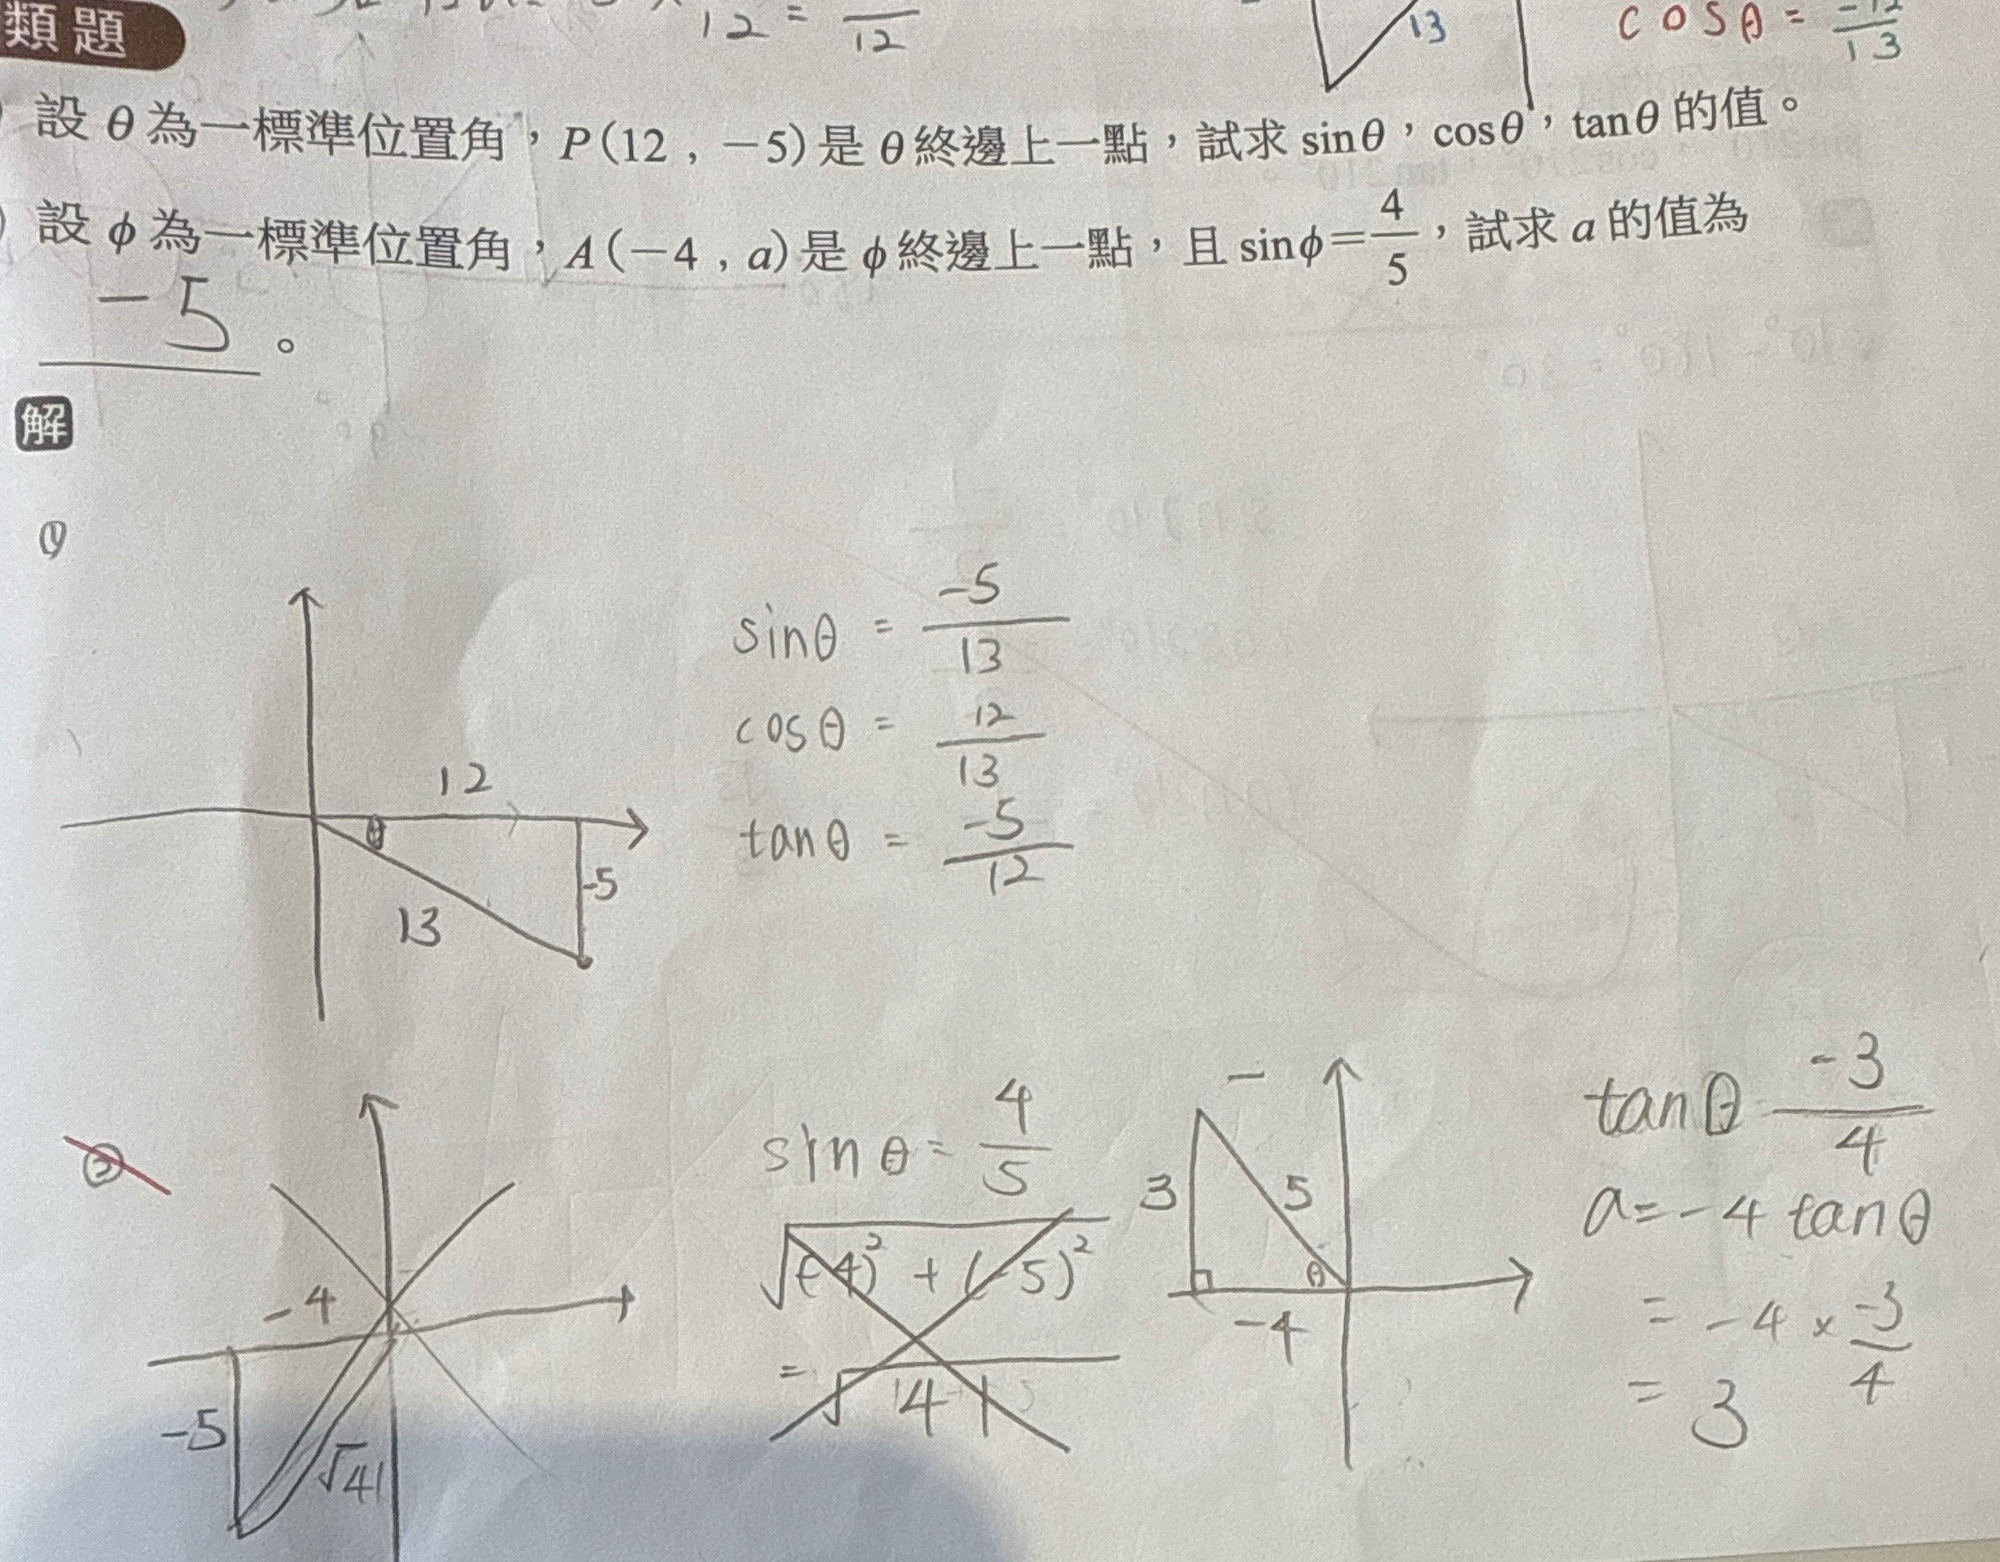 12 = 12
13
cosθ = -12/13
類題
設 θ 為一標準位置角，P(12 , −5) 是 θ 終邊上一點，試求 sinθ，cosθ，tanθ 的值。
設 ϕ 為一標準位置角，A(−4 , a) 是 ϕ 終邊上一點，且 sinϕ=4/5，試求 a 的值為
-5 。
解
(1)
12
θ
-5
13
sinθ = -5/13
cosθ = 12/13
tanθ = -5/12
②
-4
-5
√41
sinθ = 4/5
√(-4)² + (-5)²
= √41
3
5
θ
-4
tanθ -3/4
a = -4 tanθ
= -4 × -3/4
= 3